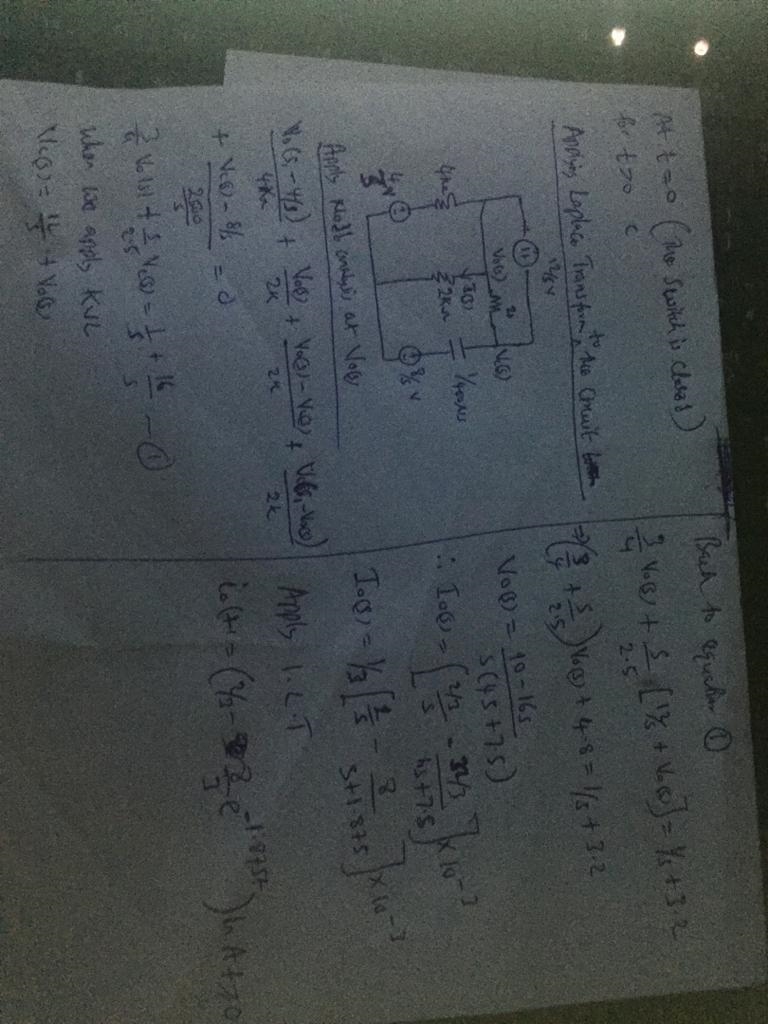 At t=0 (The switch is closed)
for t>0
Applying Laplace Transform to the Circuit
12/s V
Vo(s)
Vc(s)
4kΩ
Io(s)
2kΩ
2k
8/s V
Apply Nodal analysis at Vo(s)
Vo(s)-4/s / 4kΩ + Vo(s) / 2k + Vo(s)-Vc(s) / 2k + Vc(s)-Vo(s) / 2k
+ Vc(s)-8/s / 2500/s = 0
3/4 Vo(s) + s/2.5 Vc(s) = 1/s + 16/5 — ①
when we apply KVL
Vc(s) = 12/s + Vo(s)
Back to equation ①
3/4 Vo(s) + s/2.5 [12/s + Vo(s)] = 1/s + 3.2
⇒ (3/4 + s/2.5) Vo(s) + 4.8 = 1/s + 3.2
Vo(s) = 10-16s / s(4s+7.5)
∴ Io(s) = [2/3 / s - 32/3 / 4s+7.5] × 10⁻³
Io(s) = 1/3 [2/s - 8 / s+1.875] × 10⁻³
Apply I.L.T
io(t) = (2/3 - 8/3 e^-1.875t) mA t>0